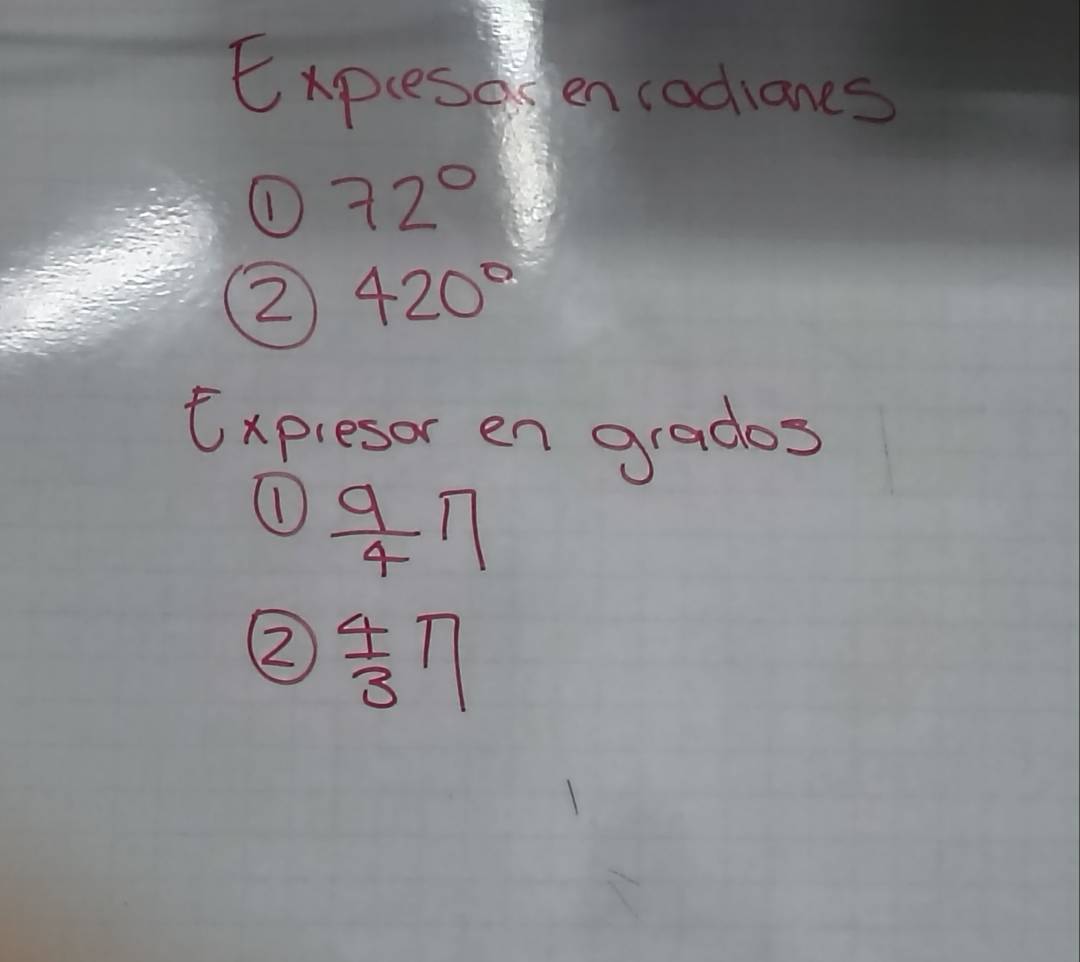 Expresar en radianes
① 72°
② 420°
Expresar en grados
① 9/4 π
② 4/3 π